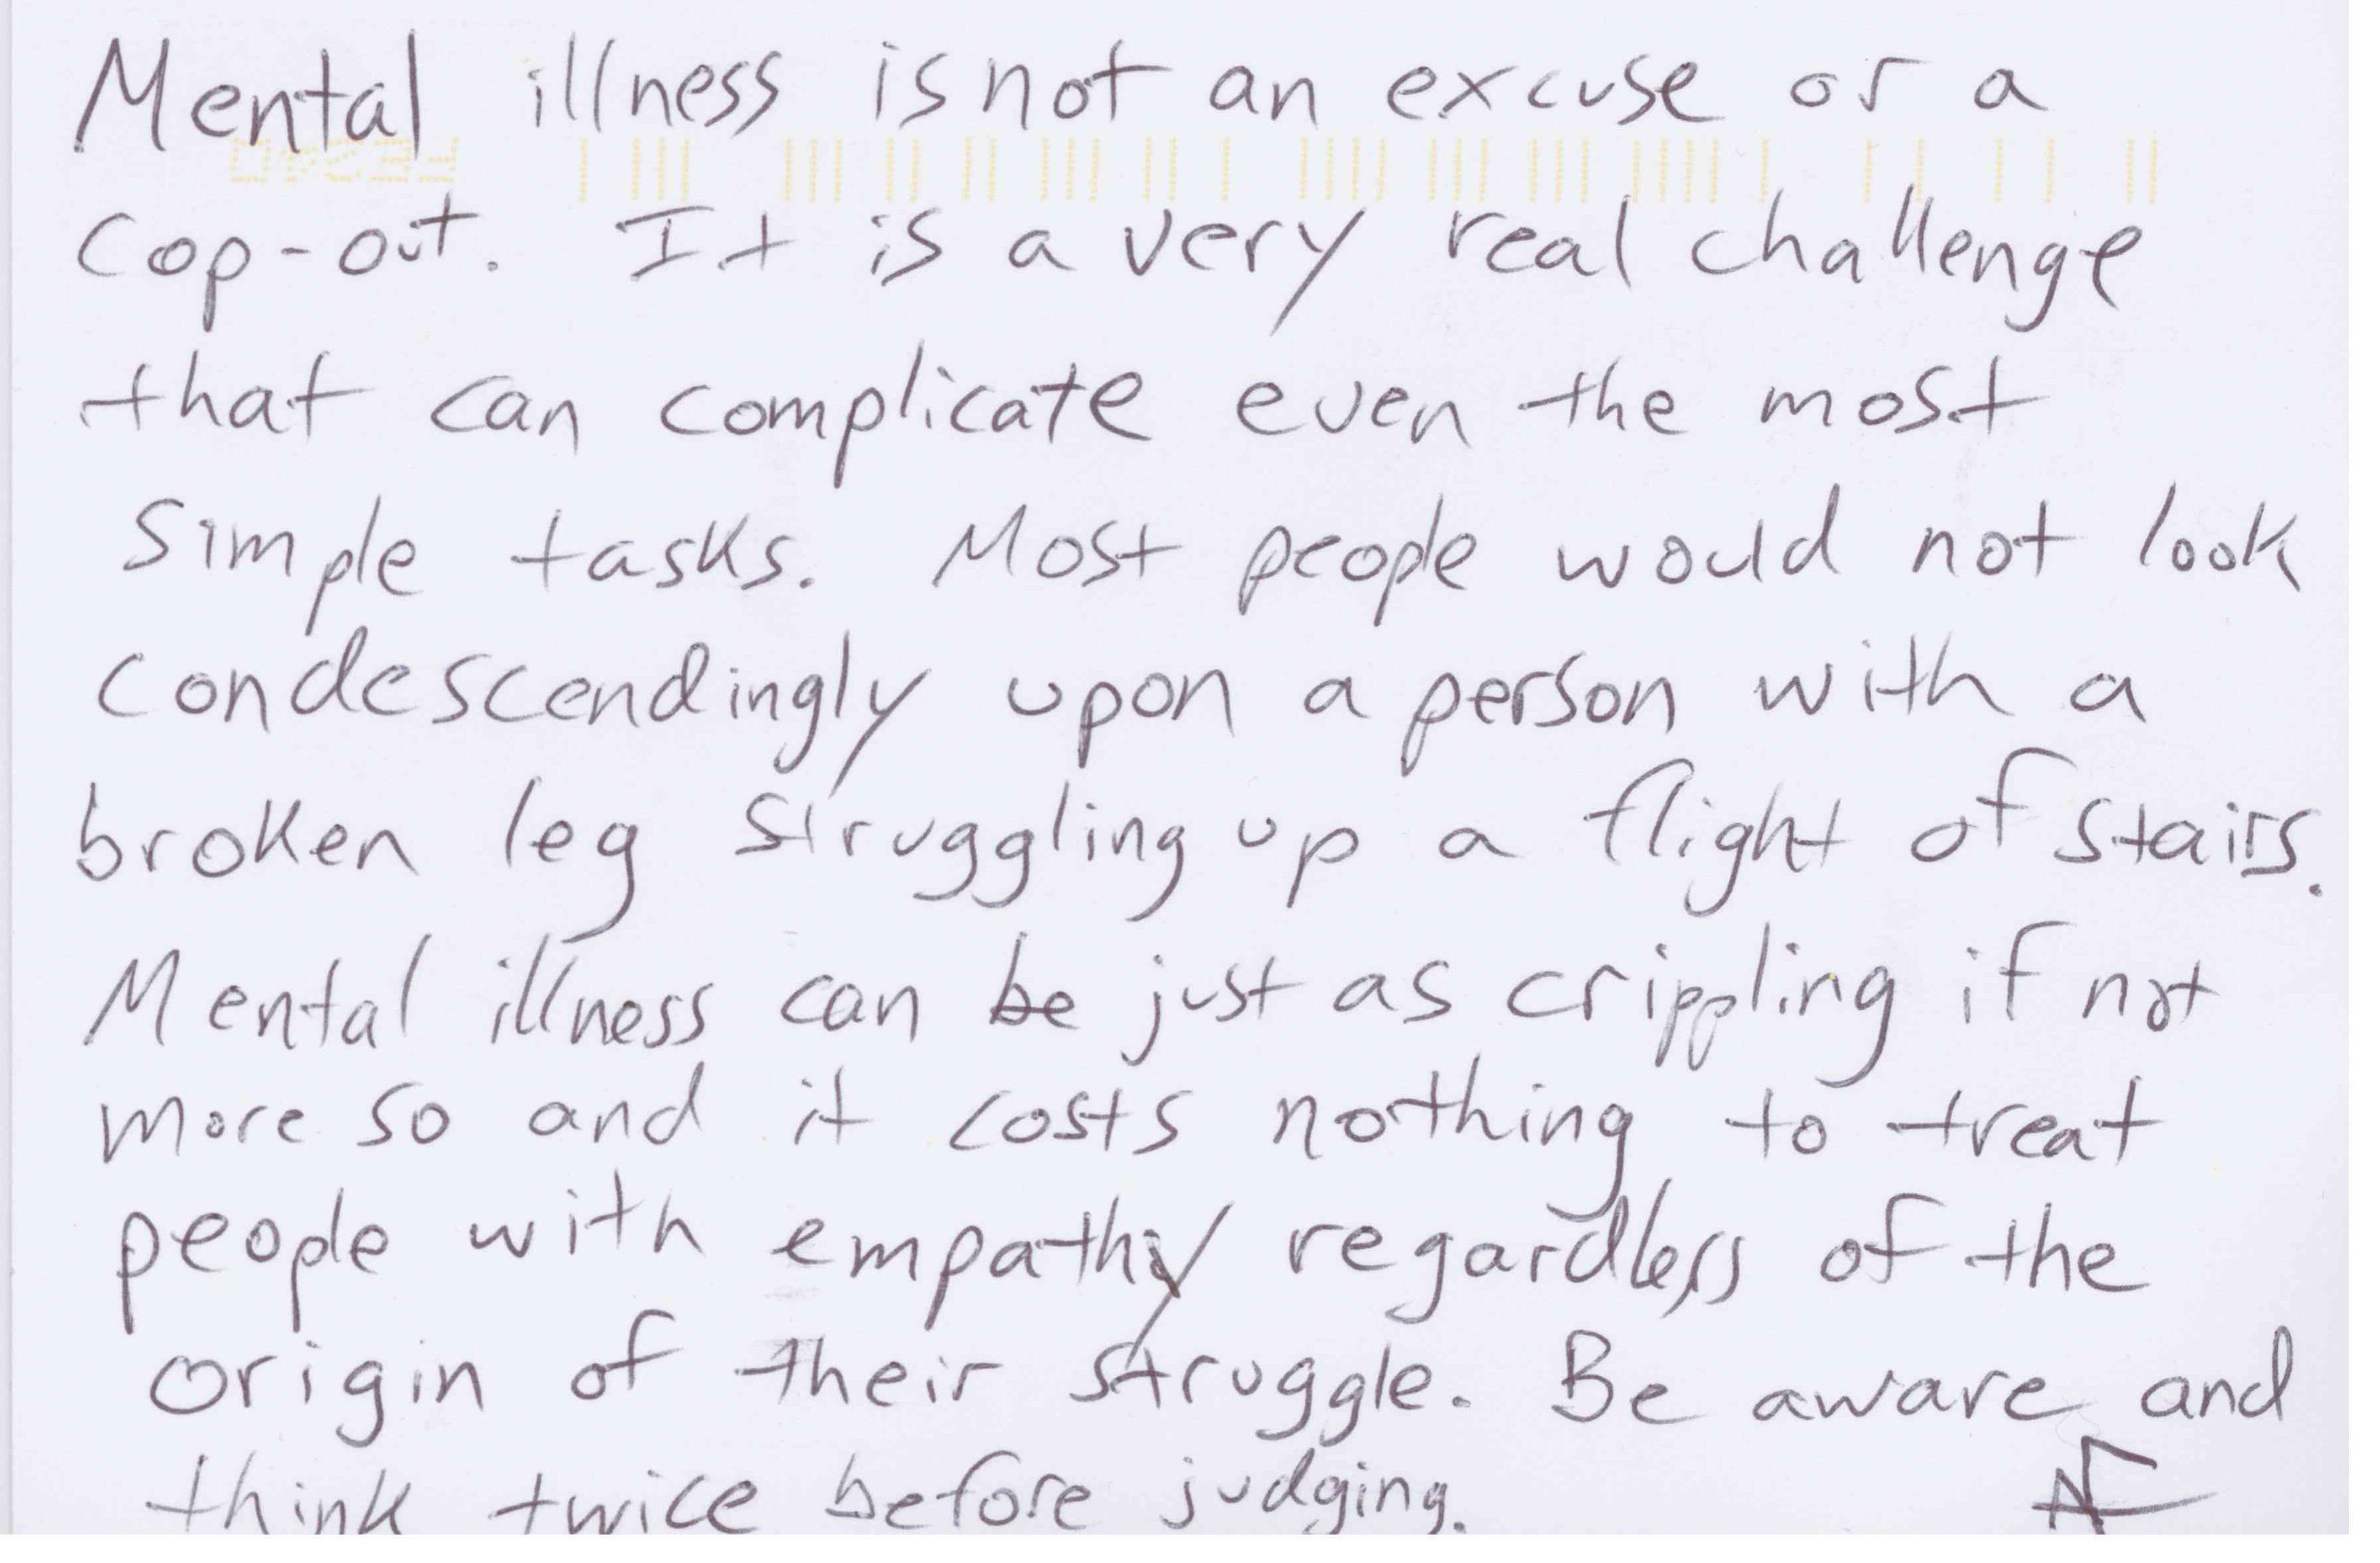 Mental illness is not an excuse or a
cop-out. It is a very real challenge
that can complicate even the most
simple tasks. Most people would not look
condescendingly upon a person with a
broken leg struggling up a flight of stairs.
Mental illness can be just as crippling if not
more so and it costs nothing to treat
people with empathy regardless of the
origin of their struggle. Be aware and
think twice before judging.